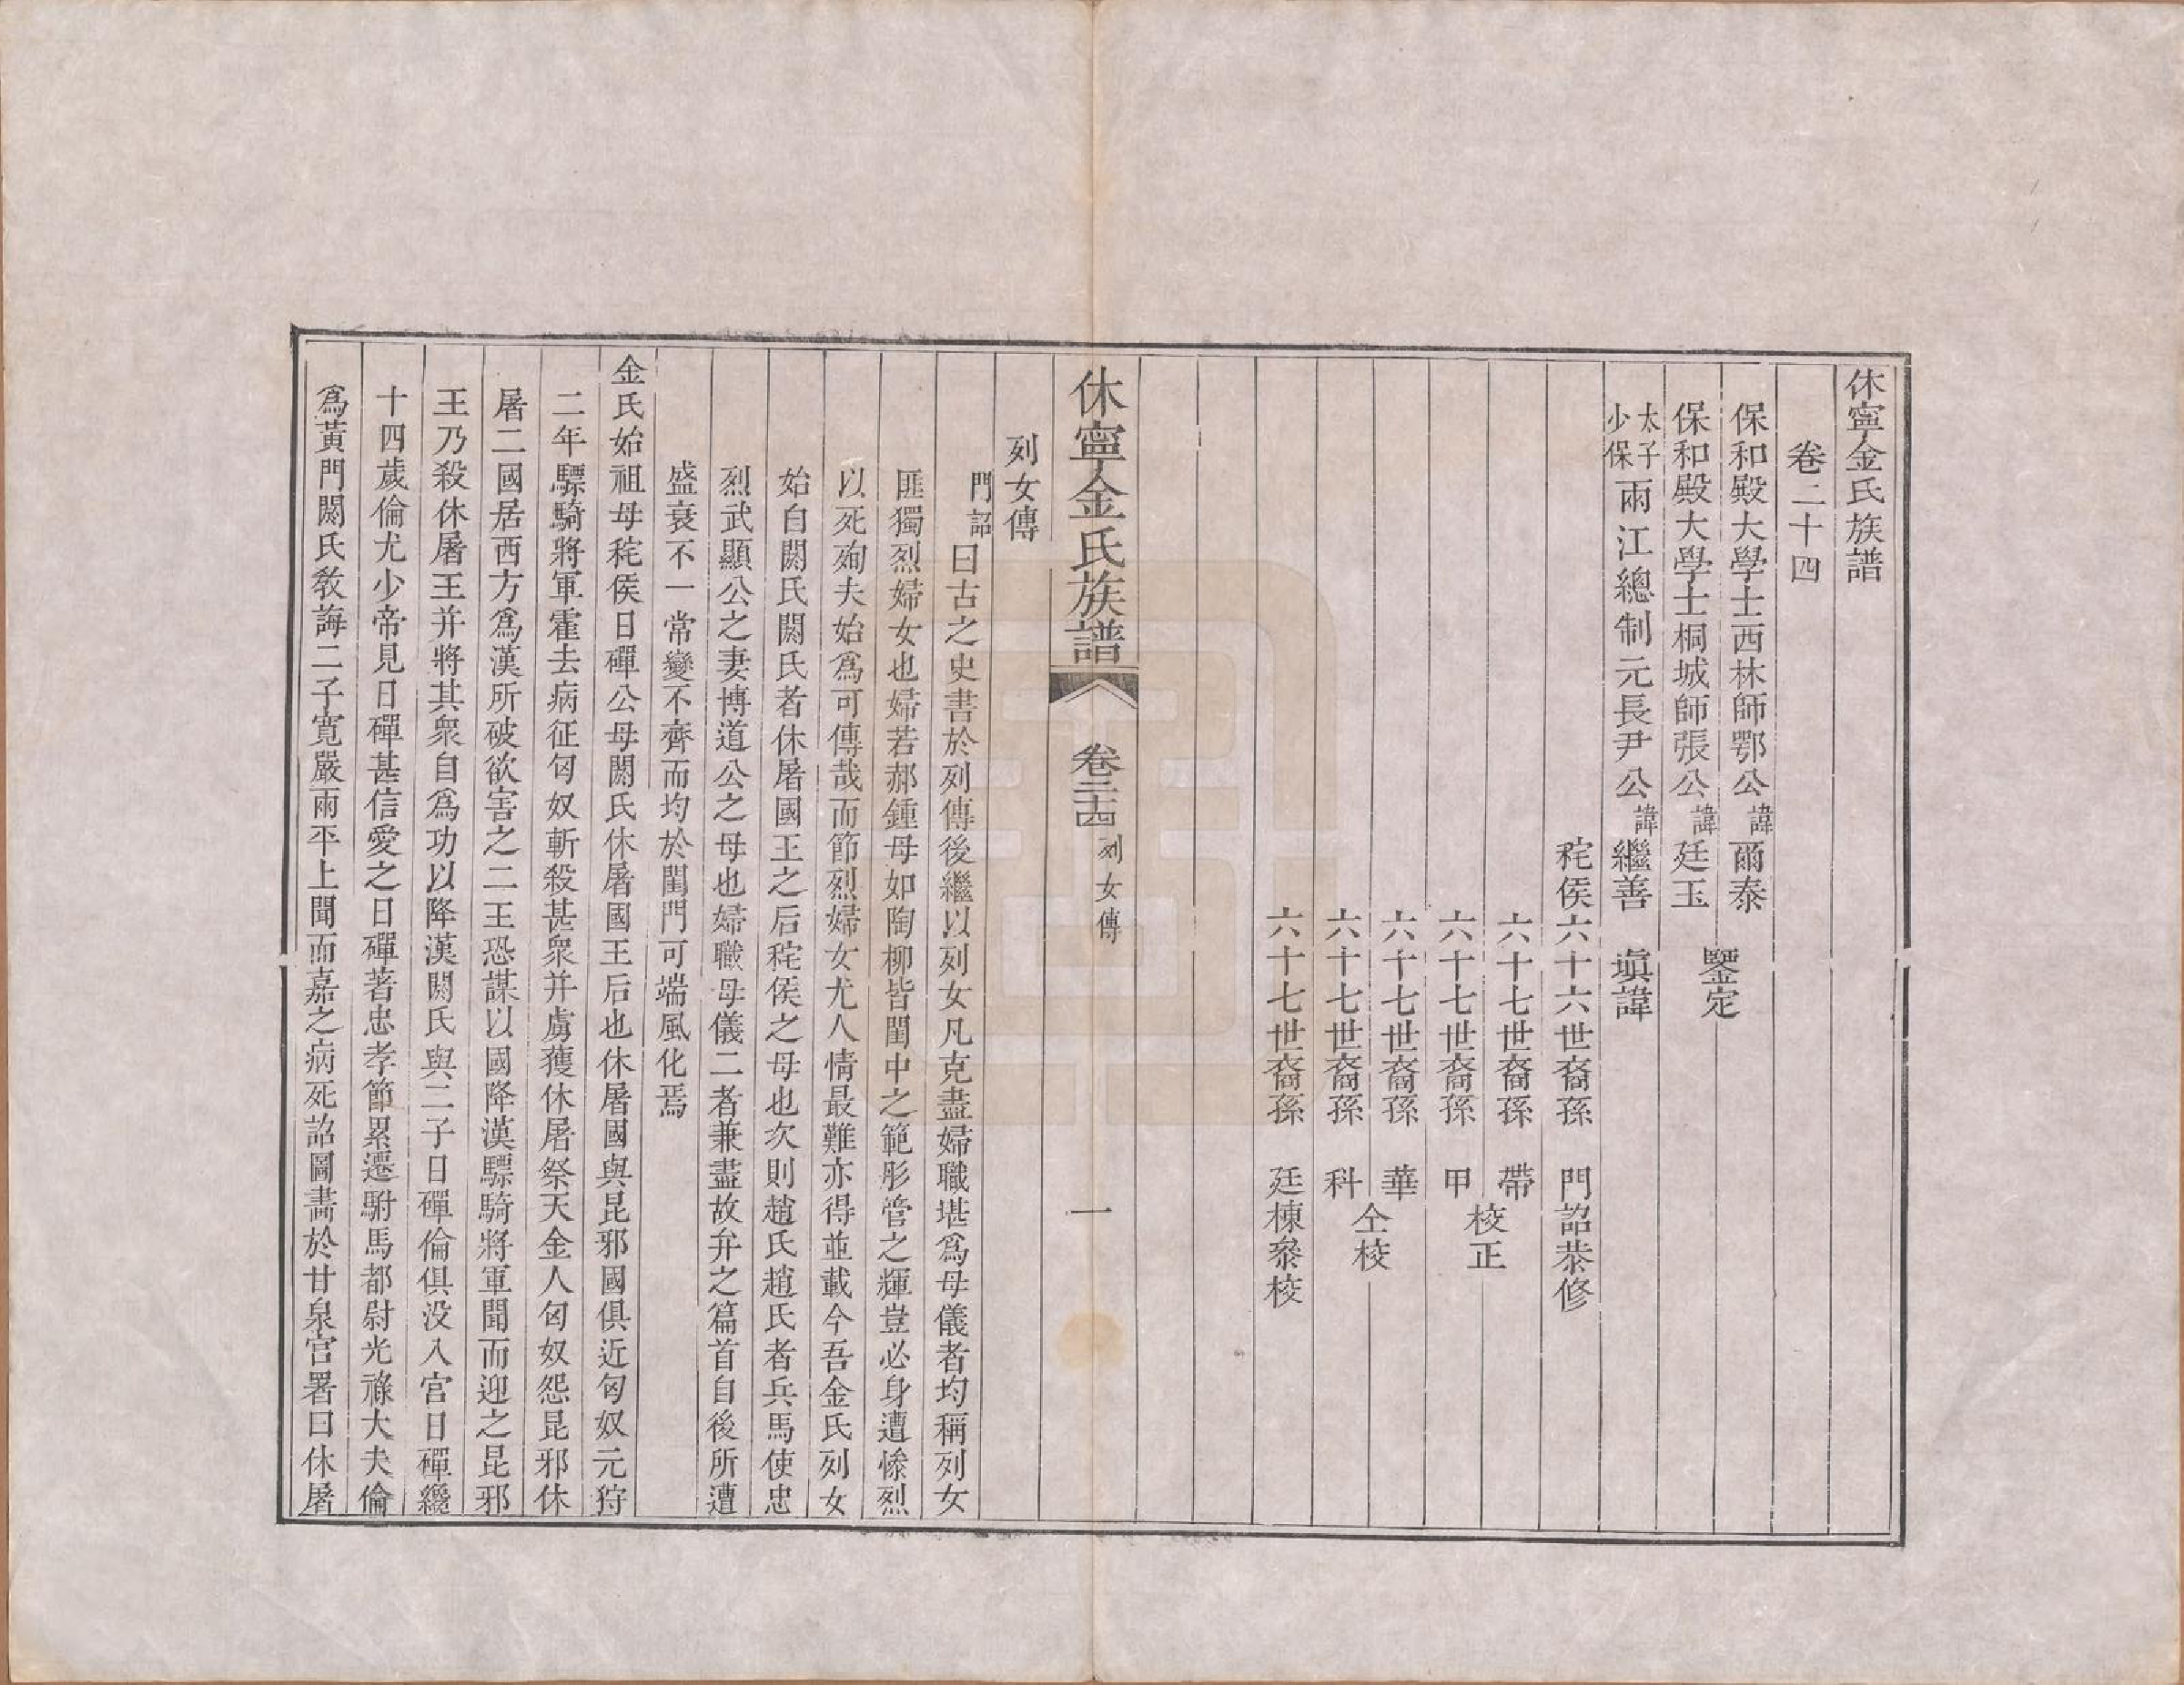 休寧金氏族譜
卷二十四
保和殿大學士西林師鄂公諱爾泰
保和殿大學士桐城師張公諱廷玉
鑒定
太子少保兩江總制元長尹公諱繼善　填諱
秺侯六十六世裔孫　門詔恭修
六十七世裔孫　帶
六十七世裔孫　甲
校正
六十七世裔孫　華
六十七世裔孫　科
仝校
六十七世裔孫　廷棟叅校
休寧金氏族譜　卷二十四　列女傳　一
列女傳
門詔曰古之史書於列傳後繼以列女凡克盡婦職堪爲母儀者均稱列女
匪獨烈婦女也婦若郝鍾母如陶柳皆閨中之範彤管之輝豈必身遭慘烈
以死殉夫始爲可傳哉而節烈婦女尤人情最難亦得並載今吾金氏列女
始自閼氏閼氏者休屠國王之后秺侯之母也次則趙氏趙氏者兵馬使忠
烈武顯公之妻博道公之母也婦職母儀二者兼盡故弁之篇首自後所遭
盛衰不一常變不齊而均於閨門可端風化焉
金氏始祖母秺侯日磾公母閼氏休屠國王后也休屠國與昆邪國俱近匈奴元狩
二年驃騎將軍霍去病征匈奴斬殺甚衆并虜獲休屠祭天金人匈奴怨昆邪休
屠二國居西方爲漢所破欲害之二王恐謀以國降漢驃騎將軍聞而迎之昆邪
王乃殺休屠王并將其衆自爲功以降漢閼氏與二子日磾倫俱没入宫日磾纔
十四歲倫尤少帝見日磾甚信愛之日磾著忠孝節累遷駙馬都尉光祿大夫倫
爲黃門閼氏敎誨二子寬嚴兩平上聞而嘉之病死詔圖畫於甘泉宫署曰休屠